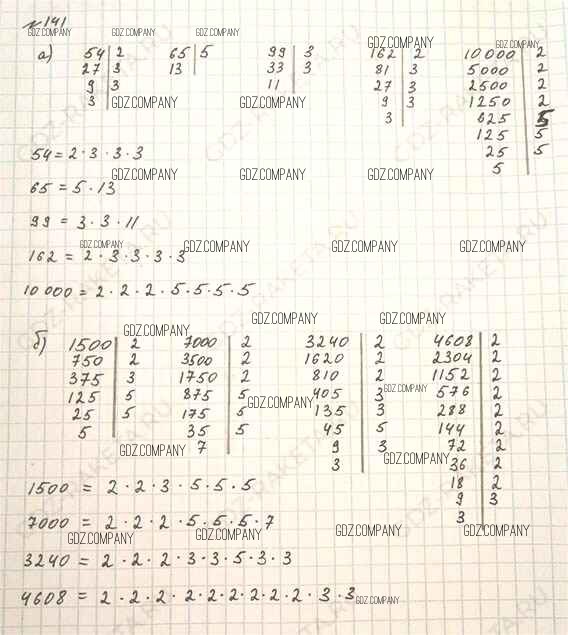 № 141
GDZ.COMPANY GDZ.COMPANY GDZ.COMPANY GDZ.COMPANY GDZ.COMPANY
а) 54 | 2 65 | 5 99 | 3 162 | 2 10 000 | 2
27 | 3 13 | 33 | 3 81 | 3 5000 | 2
9 | 3 11 | 27 | 3 2500 | 2
3 | 9 | 3 1250 | 2
GDZ.COMPANY GDZ.COMPANY
3 | 625 | 5
125 | 5
25 | 5
5 |
54 = 2 · 3 · 3 · 3
GDZ.COMPANY GDZ.COMPANY GDZ.COMPANY
65 = 5 · 13
99 = 3 · 3 · 11
GDZ.COMPANY GDZ.COMPANY GDZ.COMPANY GDZ.COMPANY
162 = 2 · 3 · 3 · 3 · 3
10 000 = 2 · 2 · 2 · 5 · 5 · 5 · 5
GDZ.COMPANY GDZ.COMPANY GDZ.COMPANY
б) 1500 | 2 7000 | 2 3240 | 2 4608 | 2
750 | 2 3500 | 2 1620 | 2 2304 | 2
375 | 3 1750 | 2 810 | 2 1152 | 2
125 | 5 875 | 5 405 | 3 576 | 2
25 | 5 175 | 5 135 | 3 288 | 2
5 | 35 | 5 45 | 5 144 | 2
7 | 9 | 3 72 | 2
3 | 36 | 2
18 | 2
9 | 3
3 |
GDZ.COMPANY GDZ.COMPANY
GDZ.COMPANY GDZ.COMPANY
1500 = 2 · 2 · 3 · 5 · 5 · 5
7000 = 2 · 2 · 2 · 5 · 5 · 5 · 7
GDZ.COMPANY GDZ.COMPANY GDZ.COMPANY GDZ.COMPANY
3240 = 2 · 2 · 2 · 3 · 3 · 5 · 3 · 3
4608 = 2 · 2 · 2 · 2 · 2 · 2 · 2 · 2 · 2 · 3 · 3
GDZ.COMPANY
GDZ-RAKETA.RU